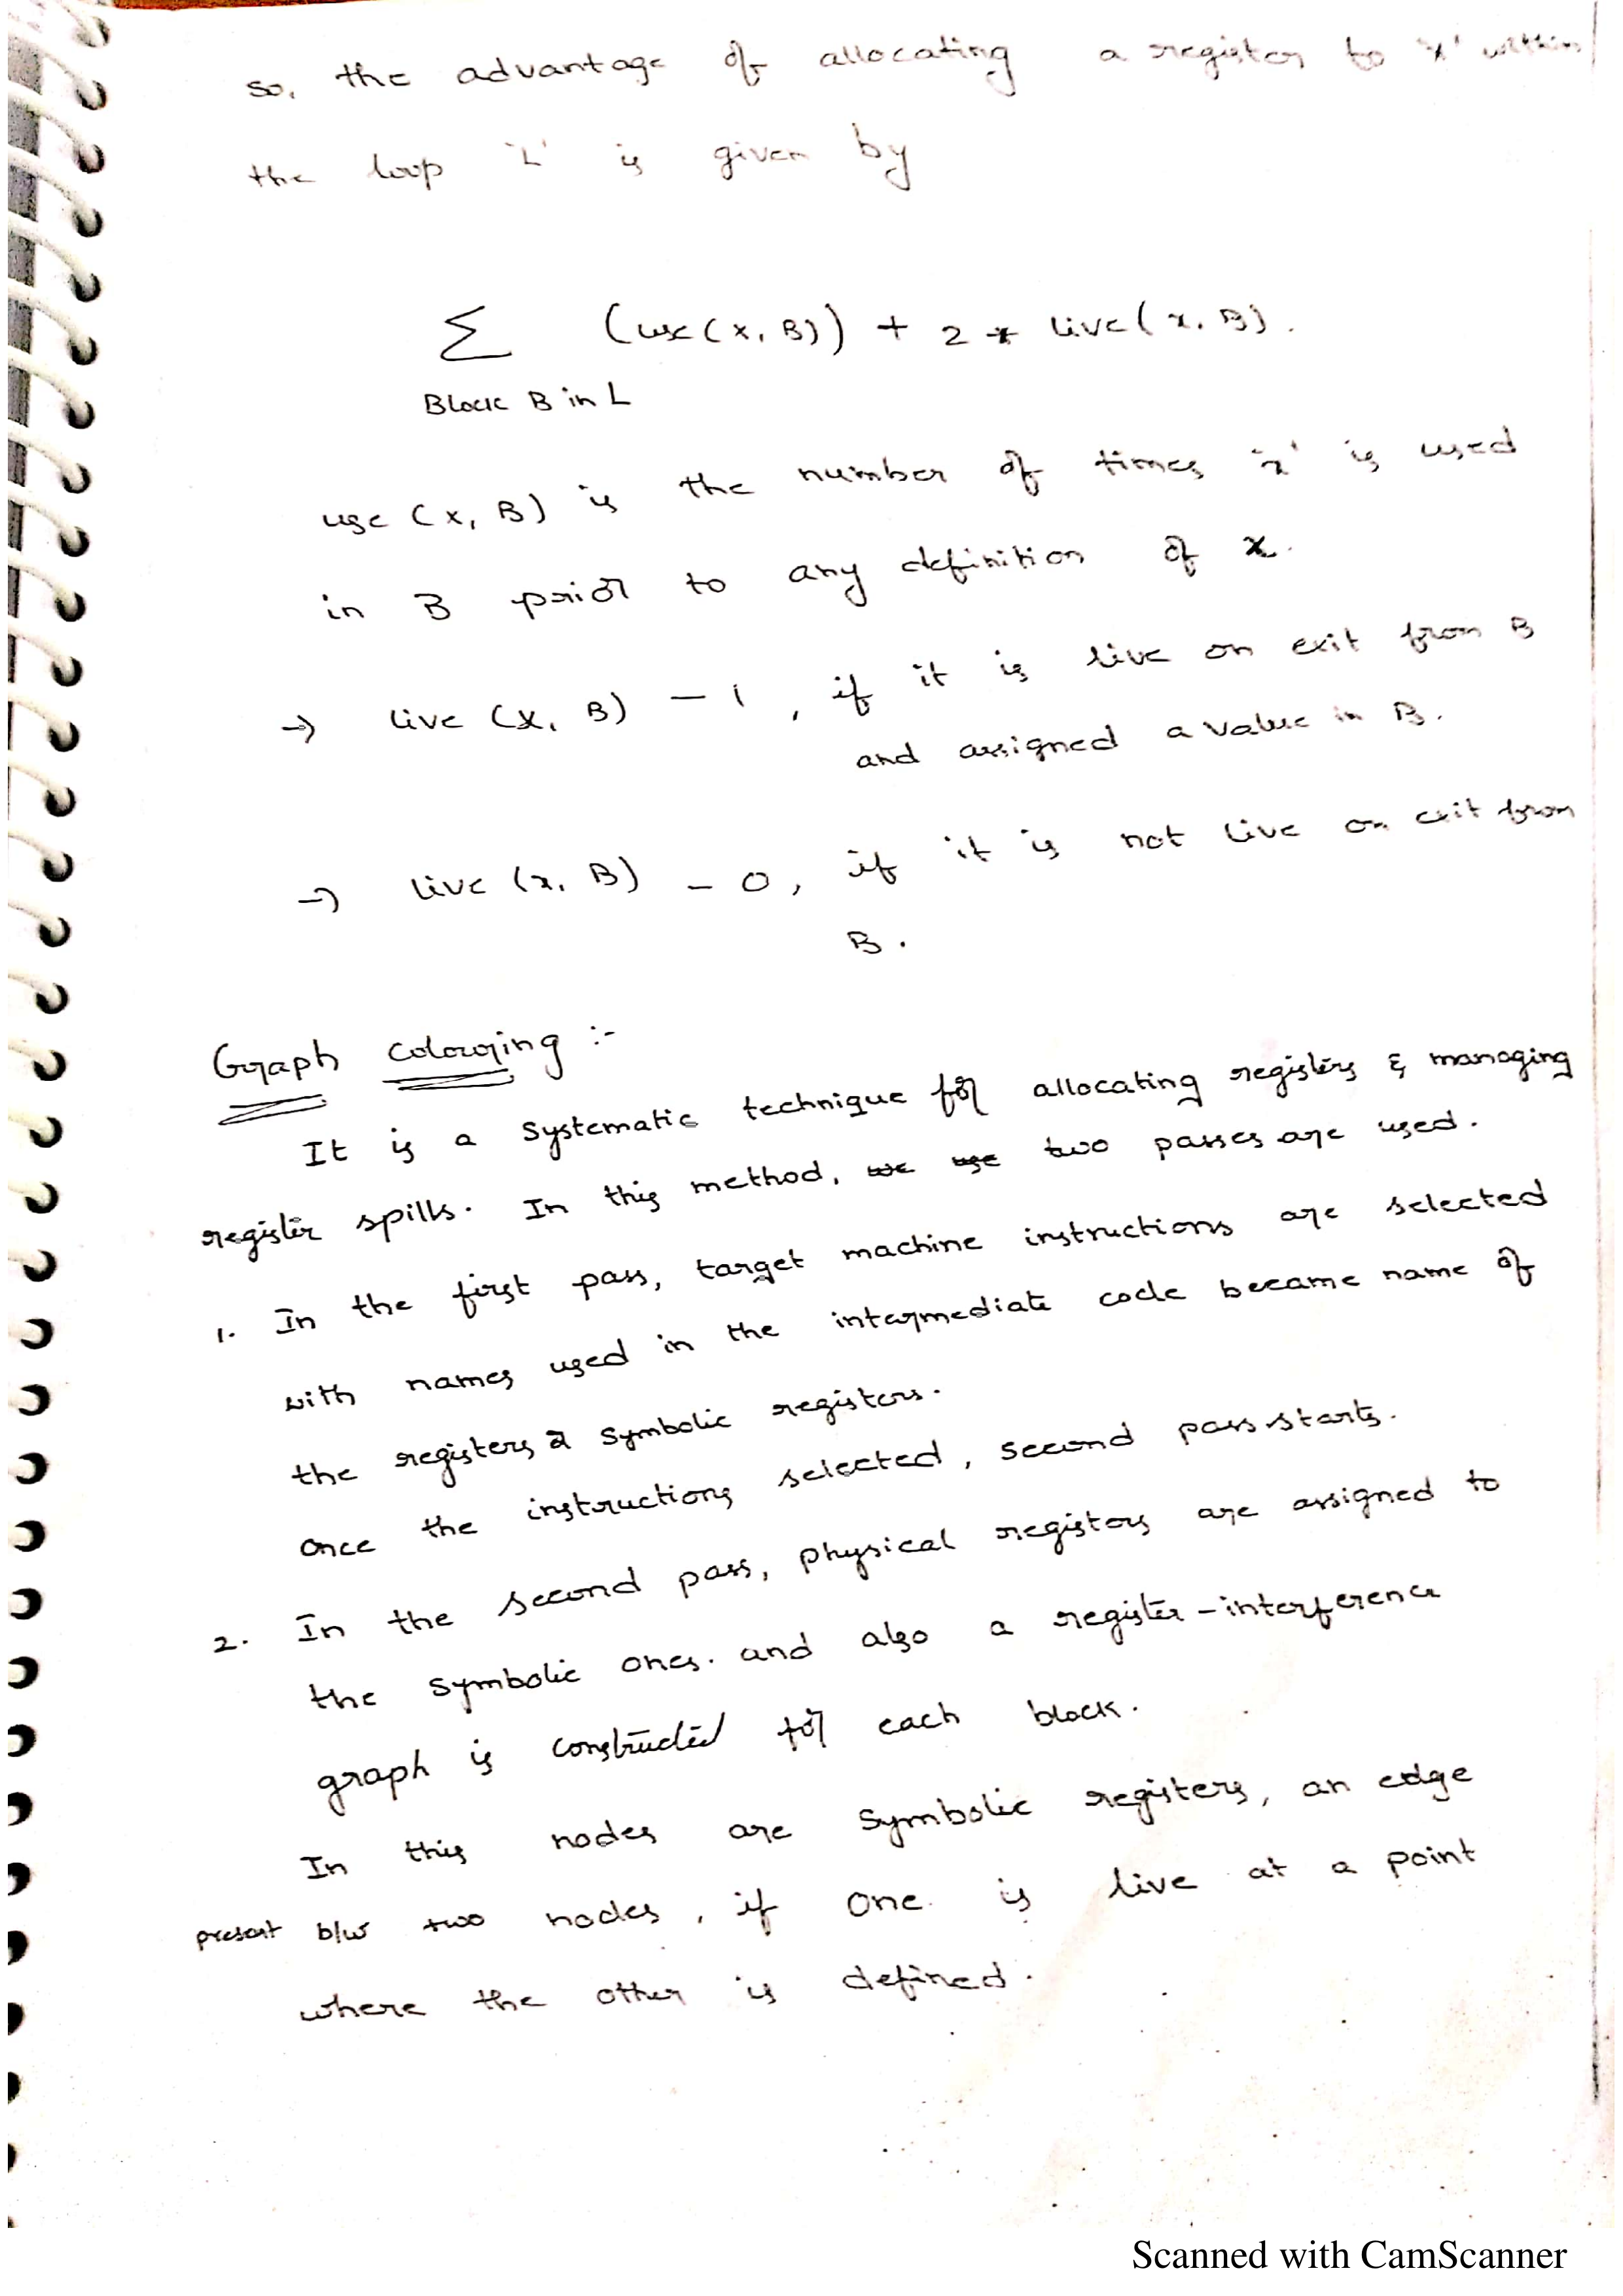 so, the advantage of allocating a register to 'x' within
the loop 'L' is given by
∑ (use(x, B)) + 2 * live(x, B).
Block B in L
use (x, B) is the number of times 'x' is used
in B prior to any definition of x.
→ live (x, B) - 1, if it is live on exit from B
and assigned a value in B.
→ live (x, B) - 0, if it is not live on exit from
B.
Graph Colouring :-
It is a systematic technique for allocating registers & managing
register spills. In this method, we use two passes are used.
1. In the first pass, target machine instructions are selected
with names used in the intermediate code became name of
the registers symbolic registers.
once the instructions selected, second pass starts.
2. In the second pass, physical registers are assigned to
the symbolic ones. and also a register-interference
graph is constructed for each block.
In this nodes are symbolic registers, an edge
present b/w two nodes, if one is live at a point
where the other is defined.
Scanned with CamScanner